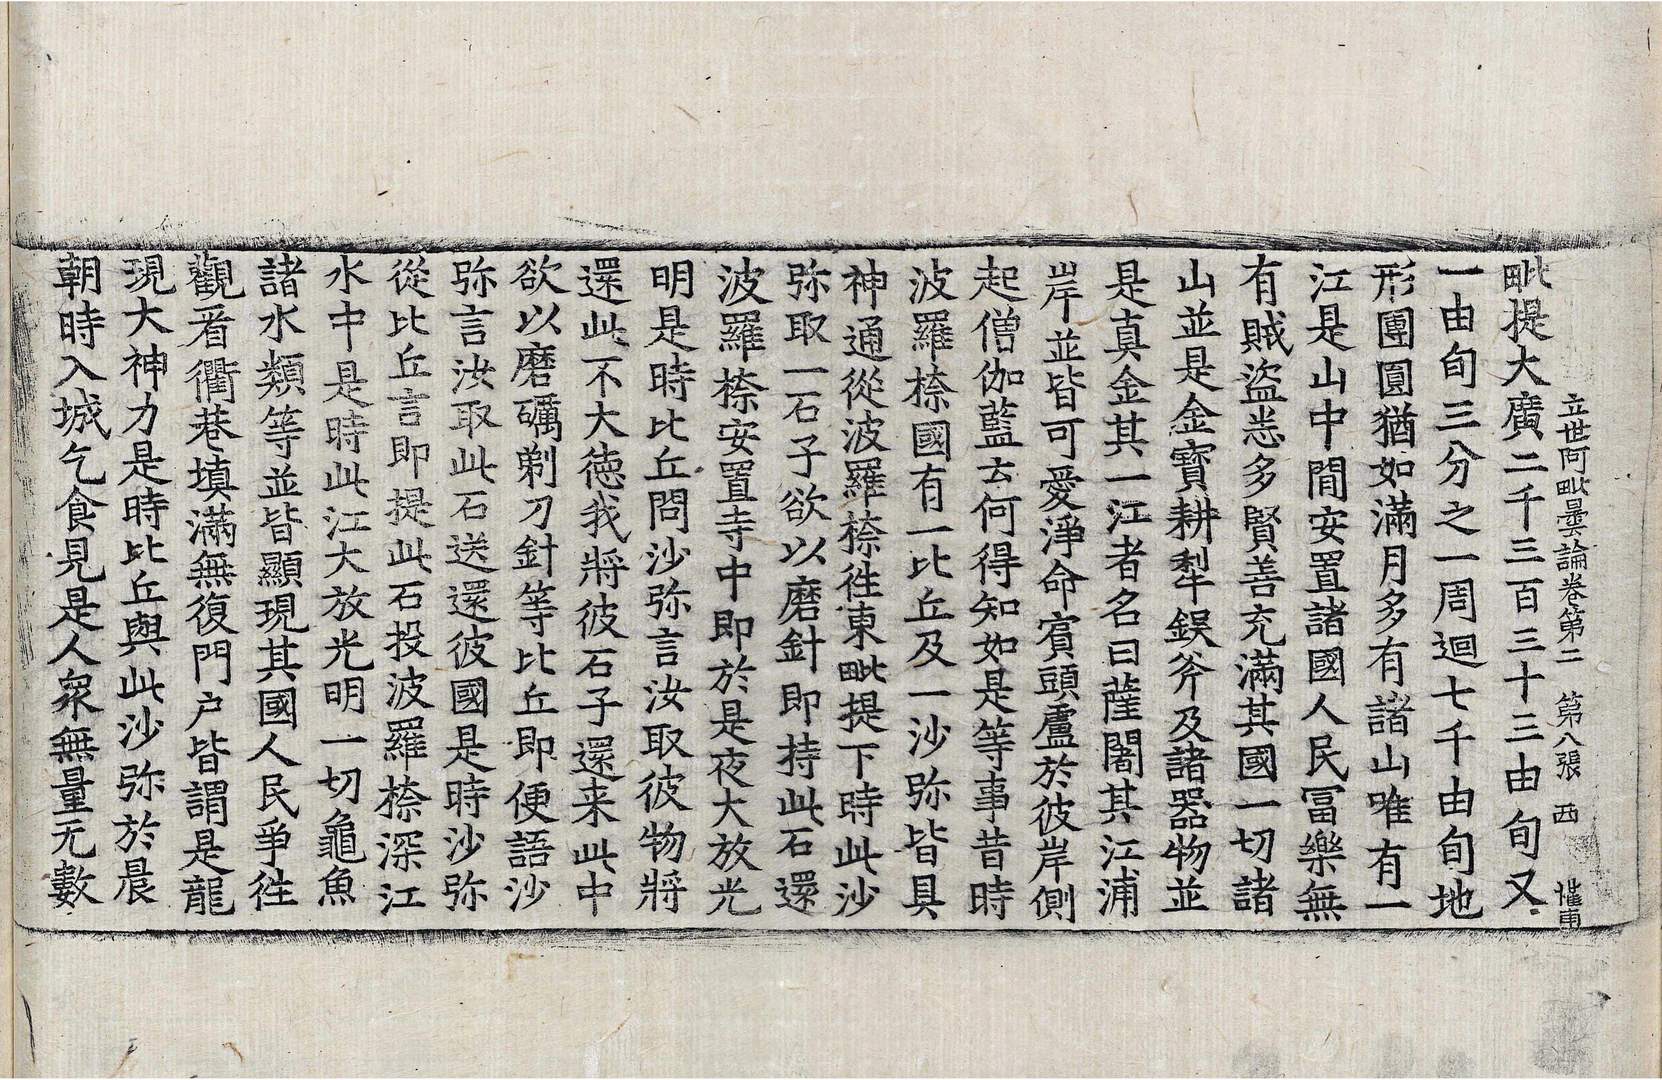 立世阿毗曇論卷第二　第八張　西
毗提大廣二千三百三十三由旬又
一由旬三分之一周迴七千由旬地
形團圓猶如滿月多有諸山唯有一
江是山中間安置諸國人民冨樂無
有賊盜恙多賢善充滿其國一切諸
山並是金寶耕犁鋘斧及諸器物並
是真金其一江者名曰薩闍其江浦
岸並皆可愛淨命賓頭盧於彼岸側
起僧伽藍云何得知如是等事昔時
波羅㮈國有一比丘及一沙弥皆具
神通從波羅㮈徃東毗提下時此沙
弥取一石子欲以磨針即持此石還
波羅㮈安置寺中即於是夜大放光
明是時比丘問沙弥言汝取彼物將
還此不大德我將彼石子還来此中
欲以磨礪剃刀針等比丘即便語沙
弥言汝取此石送還彼國是時沙弥
從比丘言即提此石投波羅㮈深江
水中是時此江大放光明一切龜魚
諸水類等並皆顯現其國人民爭徃
觀看衢巷填滿無復門户皆謂是龍
現大神力是時比丘與此沙弥於晨
朝時入城乞食見是人衆無量无數